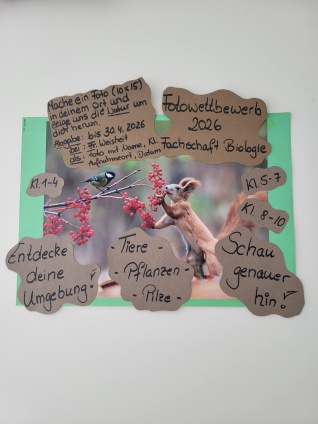 Mache ein Foto (10x15)
in deinem Ort und
zeige uns die Natur um
dich herum.
Abgabe: bis 30.4.2026
bei: Fr. Weisheit
als: Foto mit Name, Kl.
Aufnahmeort, Datum
Fotowettbewerb
2026
Fachschaft Biologie
Kl. 1-4
Kl. 5-7
Kl. 8-10
Entdecke
deine
Umgebung!
Tiere -
- Pflanzen -
- Pilze -
Schau
genauer
hin!